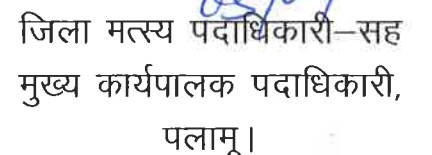 जिला मत्स्य पदाधिकारी–सह
मुख्य कार्यपालक पदाधिकारी,
पलामू।